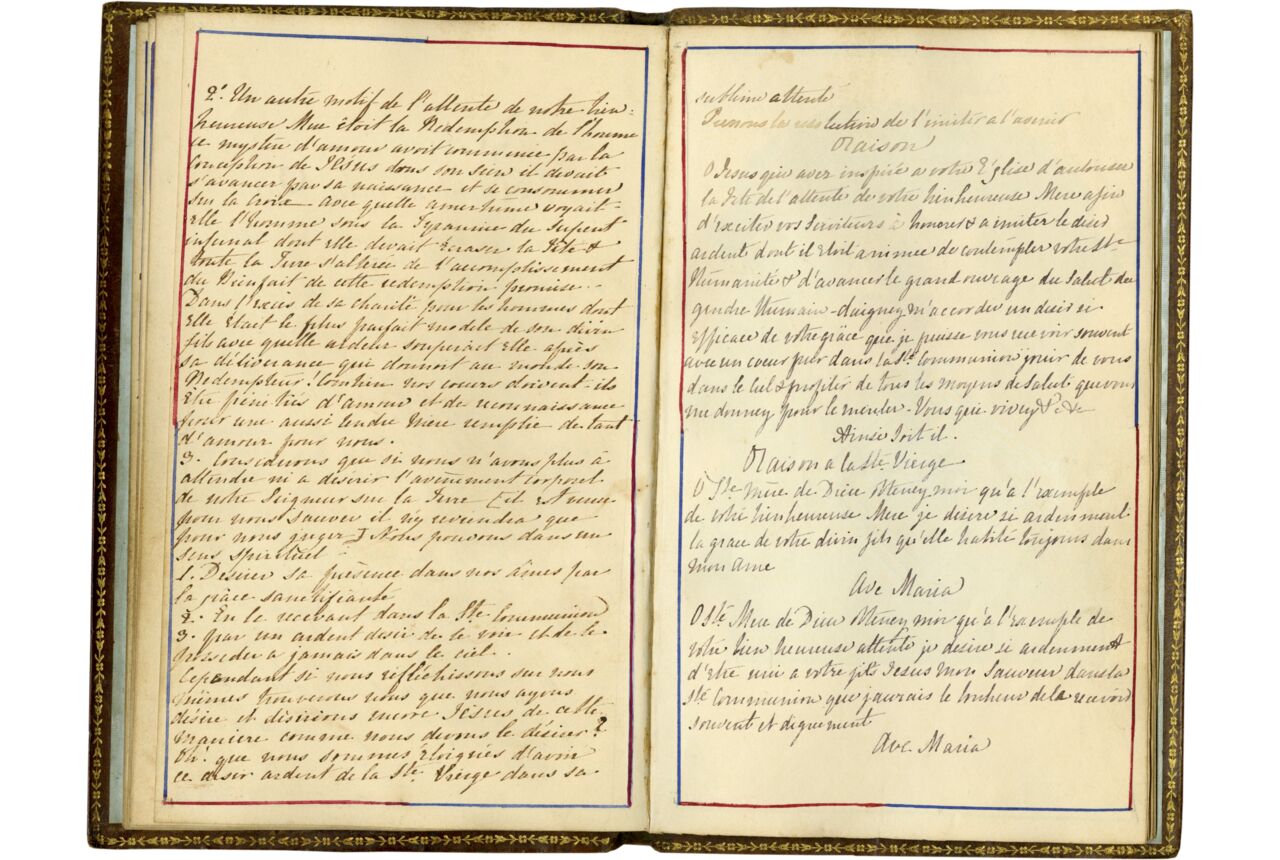 2° Un autre motif de l'attente de notre bien-
heureuse Mere étoit la Redemption de l'homme
ce mystère d'amour avoit commencé par la
conception de Jésus dans son sein il devait
s'avancer par sa naissance et se consommer
sur la Croix - Avec quelle amertume voyait-
Elle l'homme sous la Tyrannie du Serpent
infernal dont Elle devait Ecraser la Tête &
toute la Terre s'altérée de l'accomplissement
du Bienfait de cette redemption promise -
Dans l'excès de sa charité pour les hommes dont
Elle Etait le plus parfait modele de son divin
fils avec quelle ardeur soupirait Elle après
sa délivrance qui donnoit au monde son
Redempteur. Combien nos coeurs doivent-ils
etre pénétrés d'amour et de reconnaissance
pour une aussi tendre Mere remplie de tant
d'amour pour nous.
3. Considerons que si nous n'avons plus à
attendre ni a désirer l'avènement corporel
de notre Seigneur sur la Terre [il Est venu
pour nous Sauver il n'y reviendra que
pour nous juger] Nous pouvons dans un
sens spirituel -
1. Desirer sa présence dans nos âmes par
la grâce sanctifiante
2. En le recevant dans la Ste Communion
3. par un ardent desir de le voir et de le
posseder a jamais dans le ciel.
Cependant si nous réfléchissons sur nous
mêmes trouverons nous que nous ayons
désiré et désirions encore Jésus de cette
maniere comme nous devons le désirer?
Oh! que nous sommes éloignés d'avoir
ce desir ardent de la Ste Vierge dans sa
sublime attente
Prenons la resolution de l'imiter a l'avenir
Oraison
O Jesus qui avez inspiré a votre Eglise d'autoriser
la Fete de l'attente de votre bienheureuse Mere afin
d'exciter vos Serviteurs à honorer & a imiter le désir
ardent dont il Etoit animee de contempler votre Ste
Humanité & d'avancer le grand ouvrage du Salut du
gendre Humain - daigney m'accorder un desir si
efficace de votre grâce que je puisse vous recevoir souvent
avec un coeur pur dans la Ste Communion jouir de vous
dans le Ciel & profiter de tous les moyens de Salut que vous
me donney pour le meriter - Vous qui vivey & &
Ainsi soit il.
Oraison a la Ste Vierge
O Ste Mère de Dieu obteney moi qu'a l'exemple
de votre bienheureuse Mere je desire si ardemment
la grace de votre divin fils qu'elle habite toujours dans
mon ame
Ave Maria
O Ste Mere de Dieu obteney moi qu'à l'Exemple de
votre bien heureuse attente je desire si ardemment
d'etre uni a votre fils Jesus mon Sauveur dans la
Ste Communion que j'aurais le bonheur de la recevoir
souvent et dignement
Ave Maria